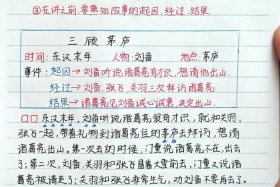 ③在讲之前,要熟知故事的起因,经过,结果
三顾茅庐
时间:东汉末年 人物:刘备 地点:茅庐
事件:起因→刘备听说诸葛亮有才识,想请他出山.
经过→刘备、关羽、张飞三次拜访诸葛亮
结果→诸葛亮见刘备诚心诚意,决定出山.
东汉末年,刘备听说诸葛亮很有才识,就和关羽、
张飞一起,带着礼物到诸葛亮住的茅庐去拜访,想请
诸葛亮出山。第一次去的时候,门童说诸葛亮不在,出去
了;第二次,刘备、关羽和张飞冒着大雪前去,门童又说诸葛
亮被请走了;关羽和张飞非常生气,劝刘备不要再去了。